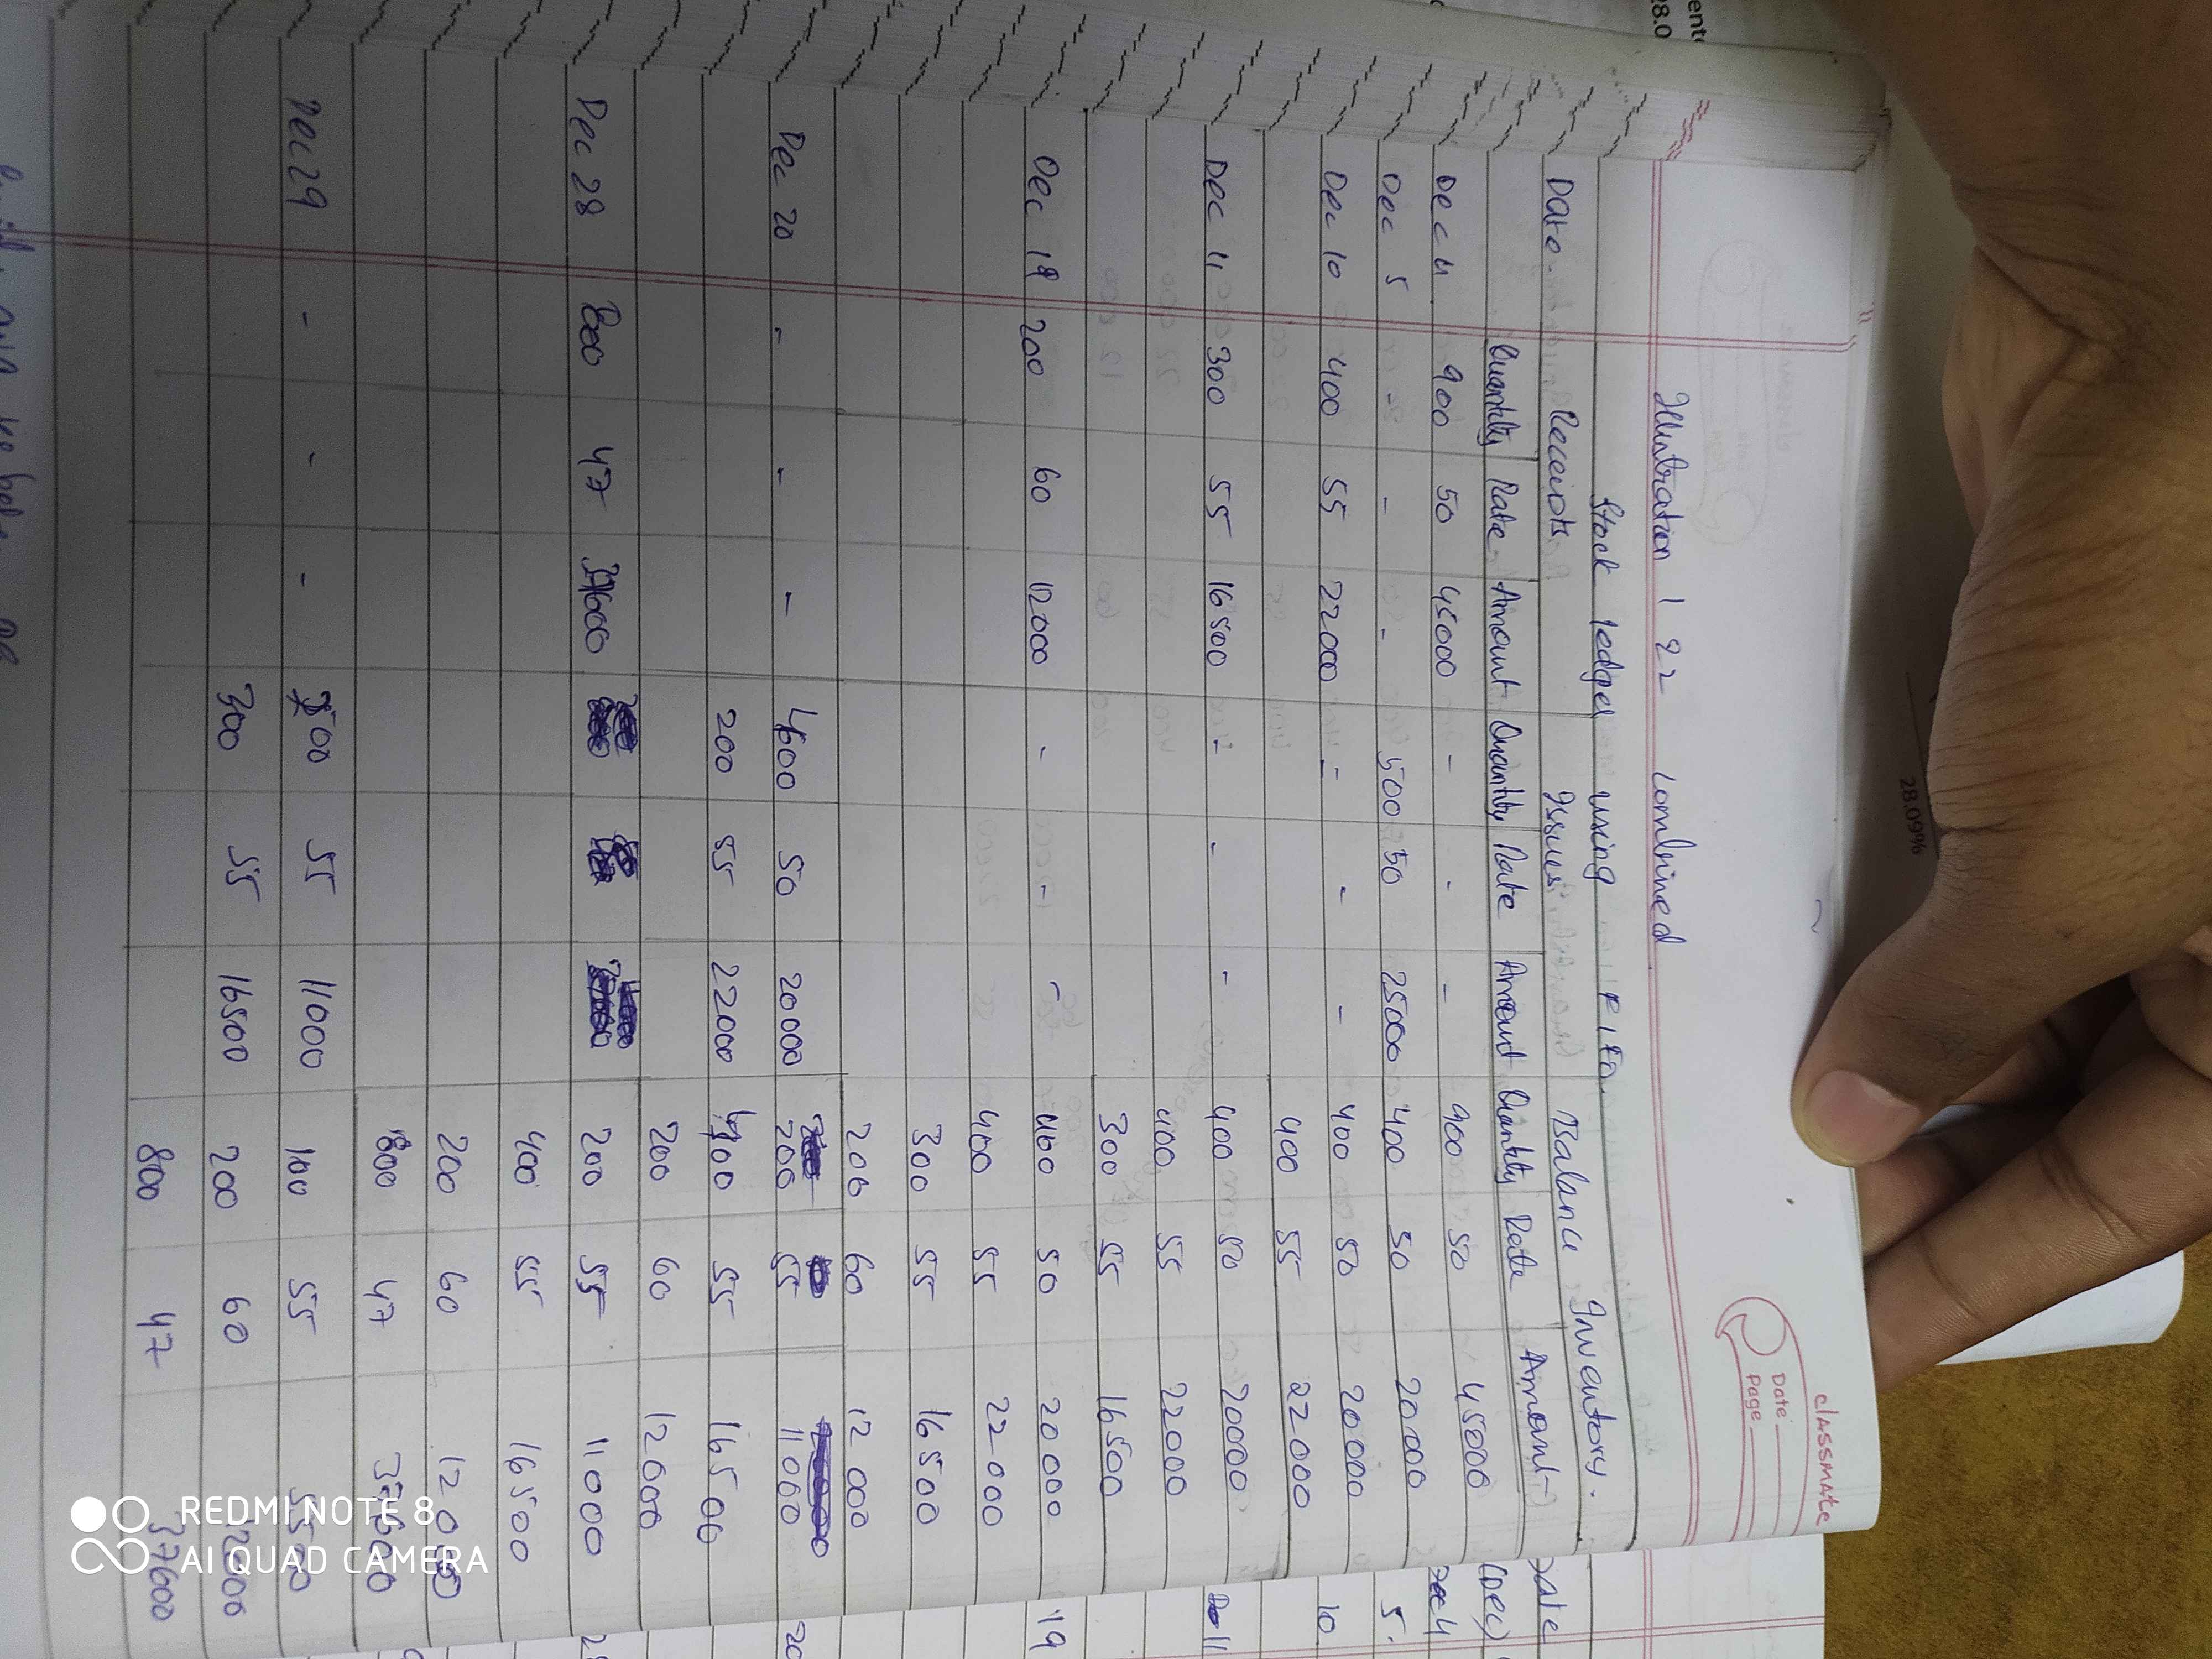 classmate
Date
Page
Illustration 1 & 2 Combined
Stock ledger using FIFO
Date Receipts Issues Balance Inventory.
Quantity Rate Amount Quantity Rate Amount Quantity Rate Amount
Dec 4 900 50 45000 - - - 900 50 45000
Dec 5 - - - 500 50 25000 400 50 20000
Dec 10 400 55 22000 - - - 400 50 20000
400 55 22000
Dec 11 300 55 16500 - - - 400 50 20000
400 55 22000
300 55 16500
Dec 19 200 60 12000 - - - 400 50 20000
400 55 22000
300 55 16500
200 60 12000
Dec 20 - - - 400 50 20000 200 55 11000
200 55 22000 55 16500
200 60 12000
Dec 28 800 47 37600 200 55 11000
400 55 16500
200 60 12000
800 47 37600
Dec 29 - - - 55 11000 100 55 5500
300 55 16500 200 60 12000
800 47 37600
Date
(Dec)
Dec 4
5.
10
11
19
20
28.09%
28.0
REDMI NOTE 8
AI QUAD CAMERA